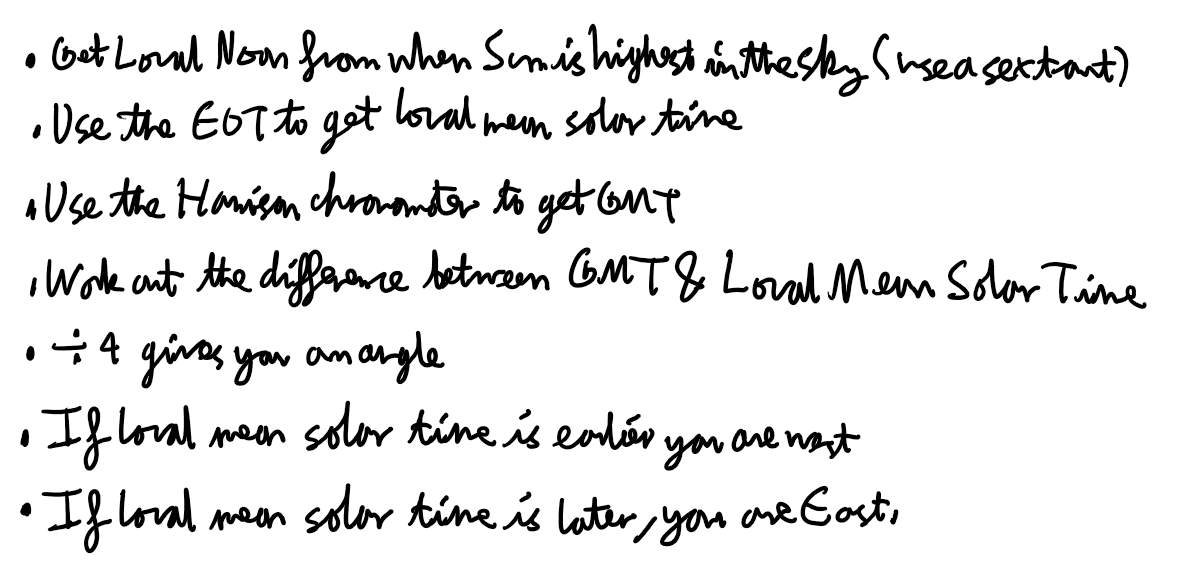 • Get Local Noon from when Sun is highest in the sky (use a sextant)
• Use the EOT to get local mean solar time
• Use the Harrison chronometer to get GMT
• Work out the difference between GMT & Local Mean Solar Time
• ÷ 4 gives you an angle
• If local mean solar time is earlier you are west
• If local mean solar time is later, you are East.